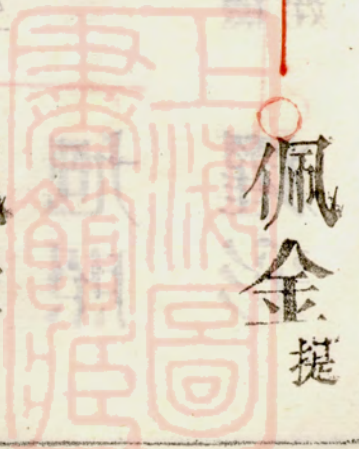 佩金
提
上海圖
書館藏